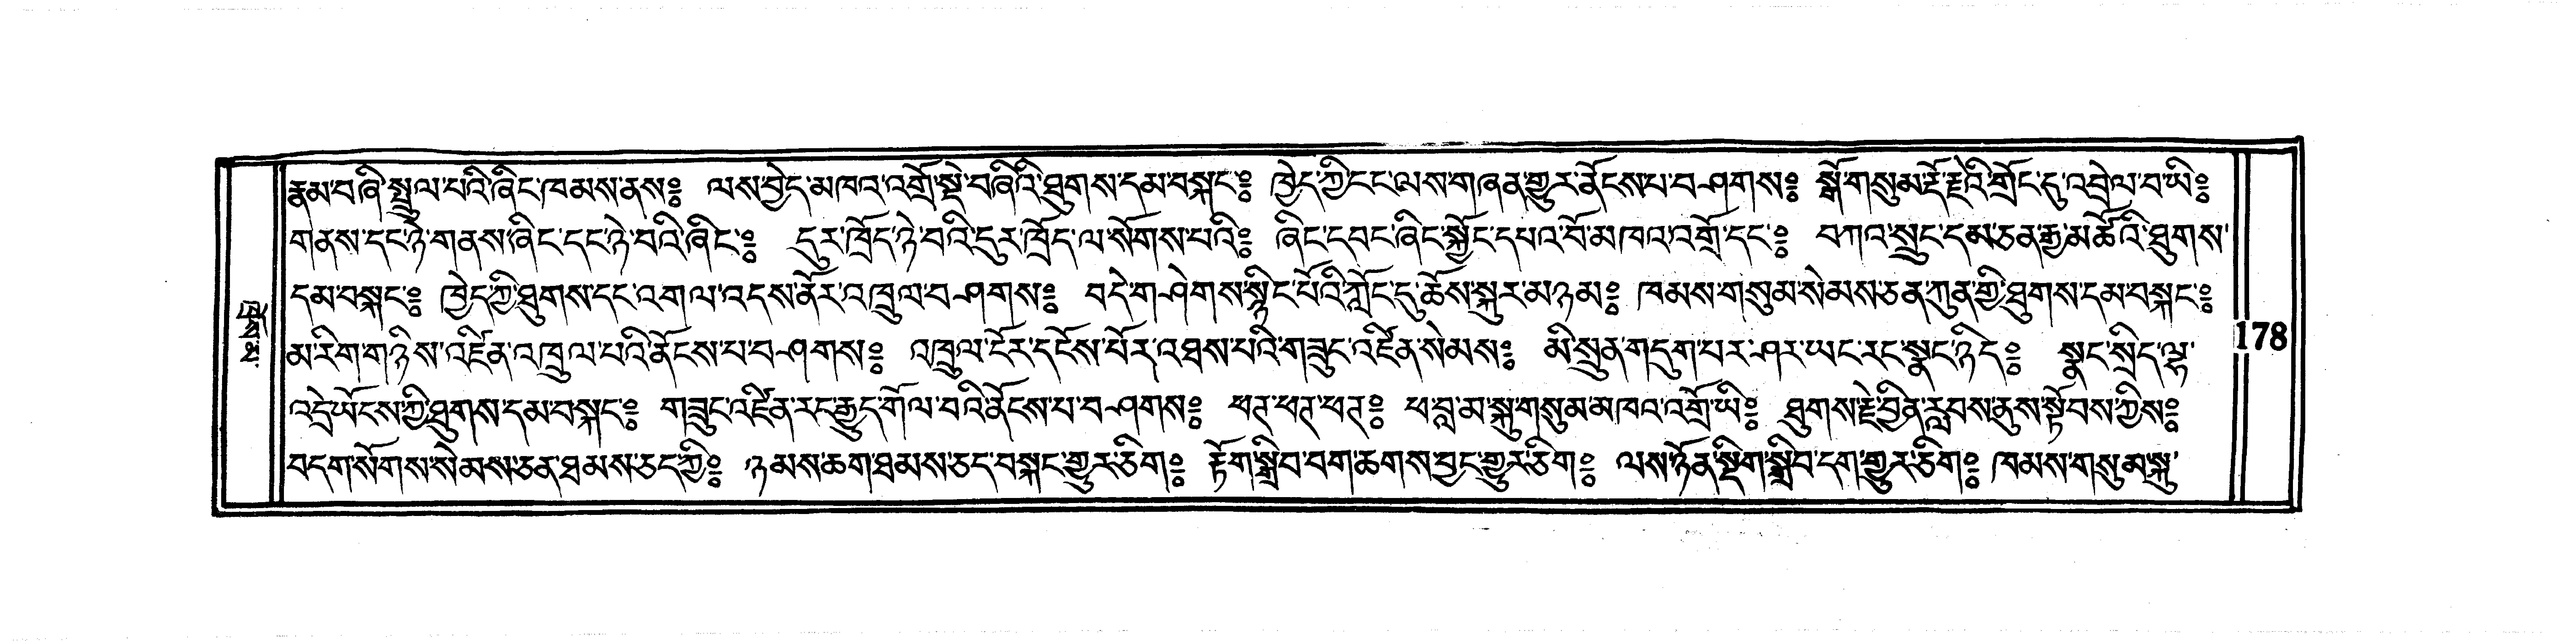 རྣམ་བཞི་སྤྲུལ་པའི་ཞིང་ཁམས་ནས༔ ལས་བྱེད་མཁའ་འགྲོ་སྡེ་བཞིའི་ཐུགས་དམ་བསྐང་༔ ཁྱེད་ཀྱི་ངང་ལས་གཞན་གྱུར་ནོངས་པ་བཤགས༔ སྒོ་གསུམ་རྡོ་རྗེའི་གྲོང་དུ་འབྲེལ་བ་ཡི༔
གནས་དང་ཉེ་གནས་ཞིང་དང་ཉེ་བའི་ཞིང་༔ དུར་ཁྲོད་ཉེ་བའི་དུར་ཁྲོད་ལ་སོགས་པའི༔ ཞིང་དབང་ཞིང་སྐྱོང་དཔའ་བོ་མཁའ་འགྲོ་དང་༔ བཀའ་སྲུང་དམ་ཅན་རྒྱ་མཚོའི་ཐུགས་
དམ་བསྐང་༔ ཁྱེད་ཀྱི་ཐུགས་དང་འགལ་འདས་ནོར་འཁྲུལ་བཤགས༔ བདེ་གཤེགས་སྙིང་པོའི་ཀློང་དུ་ཆོས་སྐུར་མཉམ༔ ཁམས་གསུམ་སེམས་ཅན་ཀུན་གྱི་ཐུགས་དམ་བསྐང་༔
མ་རིག་གཉིས་འཛིན་འཁྲུལ་པའི་ནོངས་པ་བཤགས༔ འཁྲུལ་ངོར་དངོས་པོར་འཐས་པའི་གཟུང་འཛིན་སེམས༔ མི་སྲུན་གདུག་པར་ཤར་ཡང་རང་སྣང་ཉིད༔ སྣང་སྲིད་ལྷ་
འདྲེ་ཡོངས་ཀྱི་ཐུགས་དམ་བསྐང་༔ གཟུང་འཛིན་རང་རྒྱུད་གོལ་བའི་ནོངས་པ་བཤགས༔ ཕཊ་ཕཊ་ཕཊ༔ ཕ་བླ་མ་སྐུ་གསུམ་མཁའ་འགྲོ་ཡི༔ ཐུགས་རྗེ་བྱིན་རླབས་ནུས་སྟོབས་ཀྱིས༔
བདག་སོགས་སེམས་ཅན་ཐམས་ཅད་ཀྱི༔ ཉམས་ཆག་ཐམས་ཅད་བསྐང་གྱུར་ཅིག༔ རྟོག་སྒྲིབ་བག་ཆགས་བྱང་གྱུར་ཅིག༔ ལས་ཉོན་སྡིག་སྒྲིབ་དག་གྱུར་ཅིག༔ ཁམས་གསུམ་སྐུ་
178